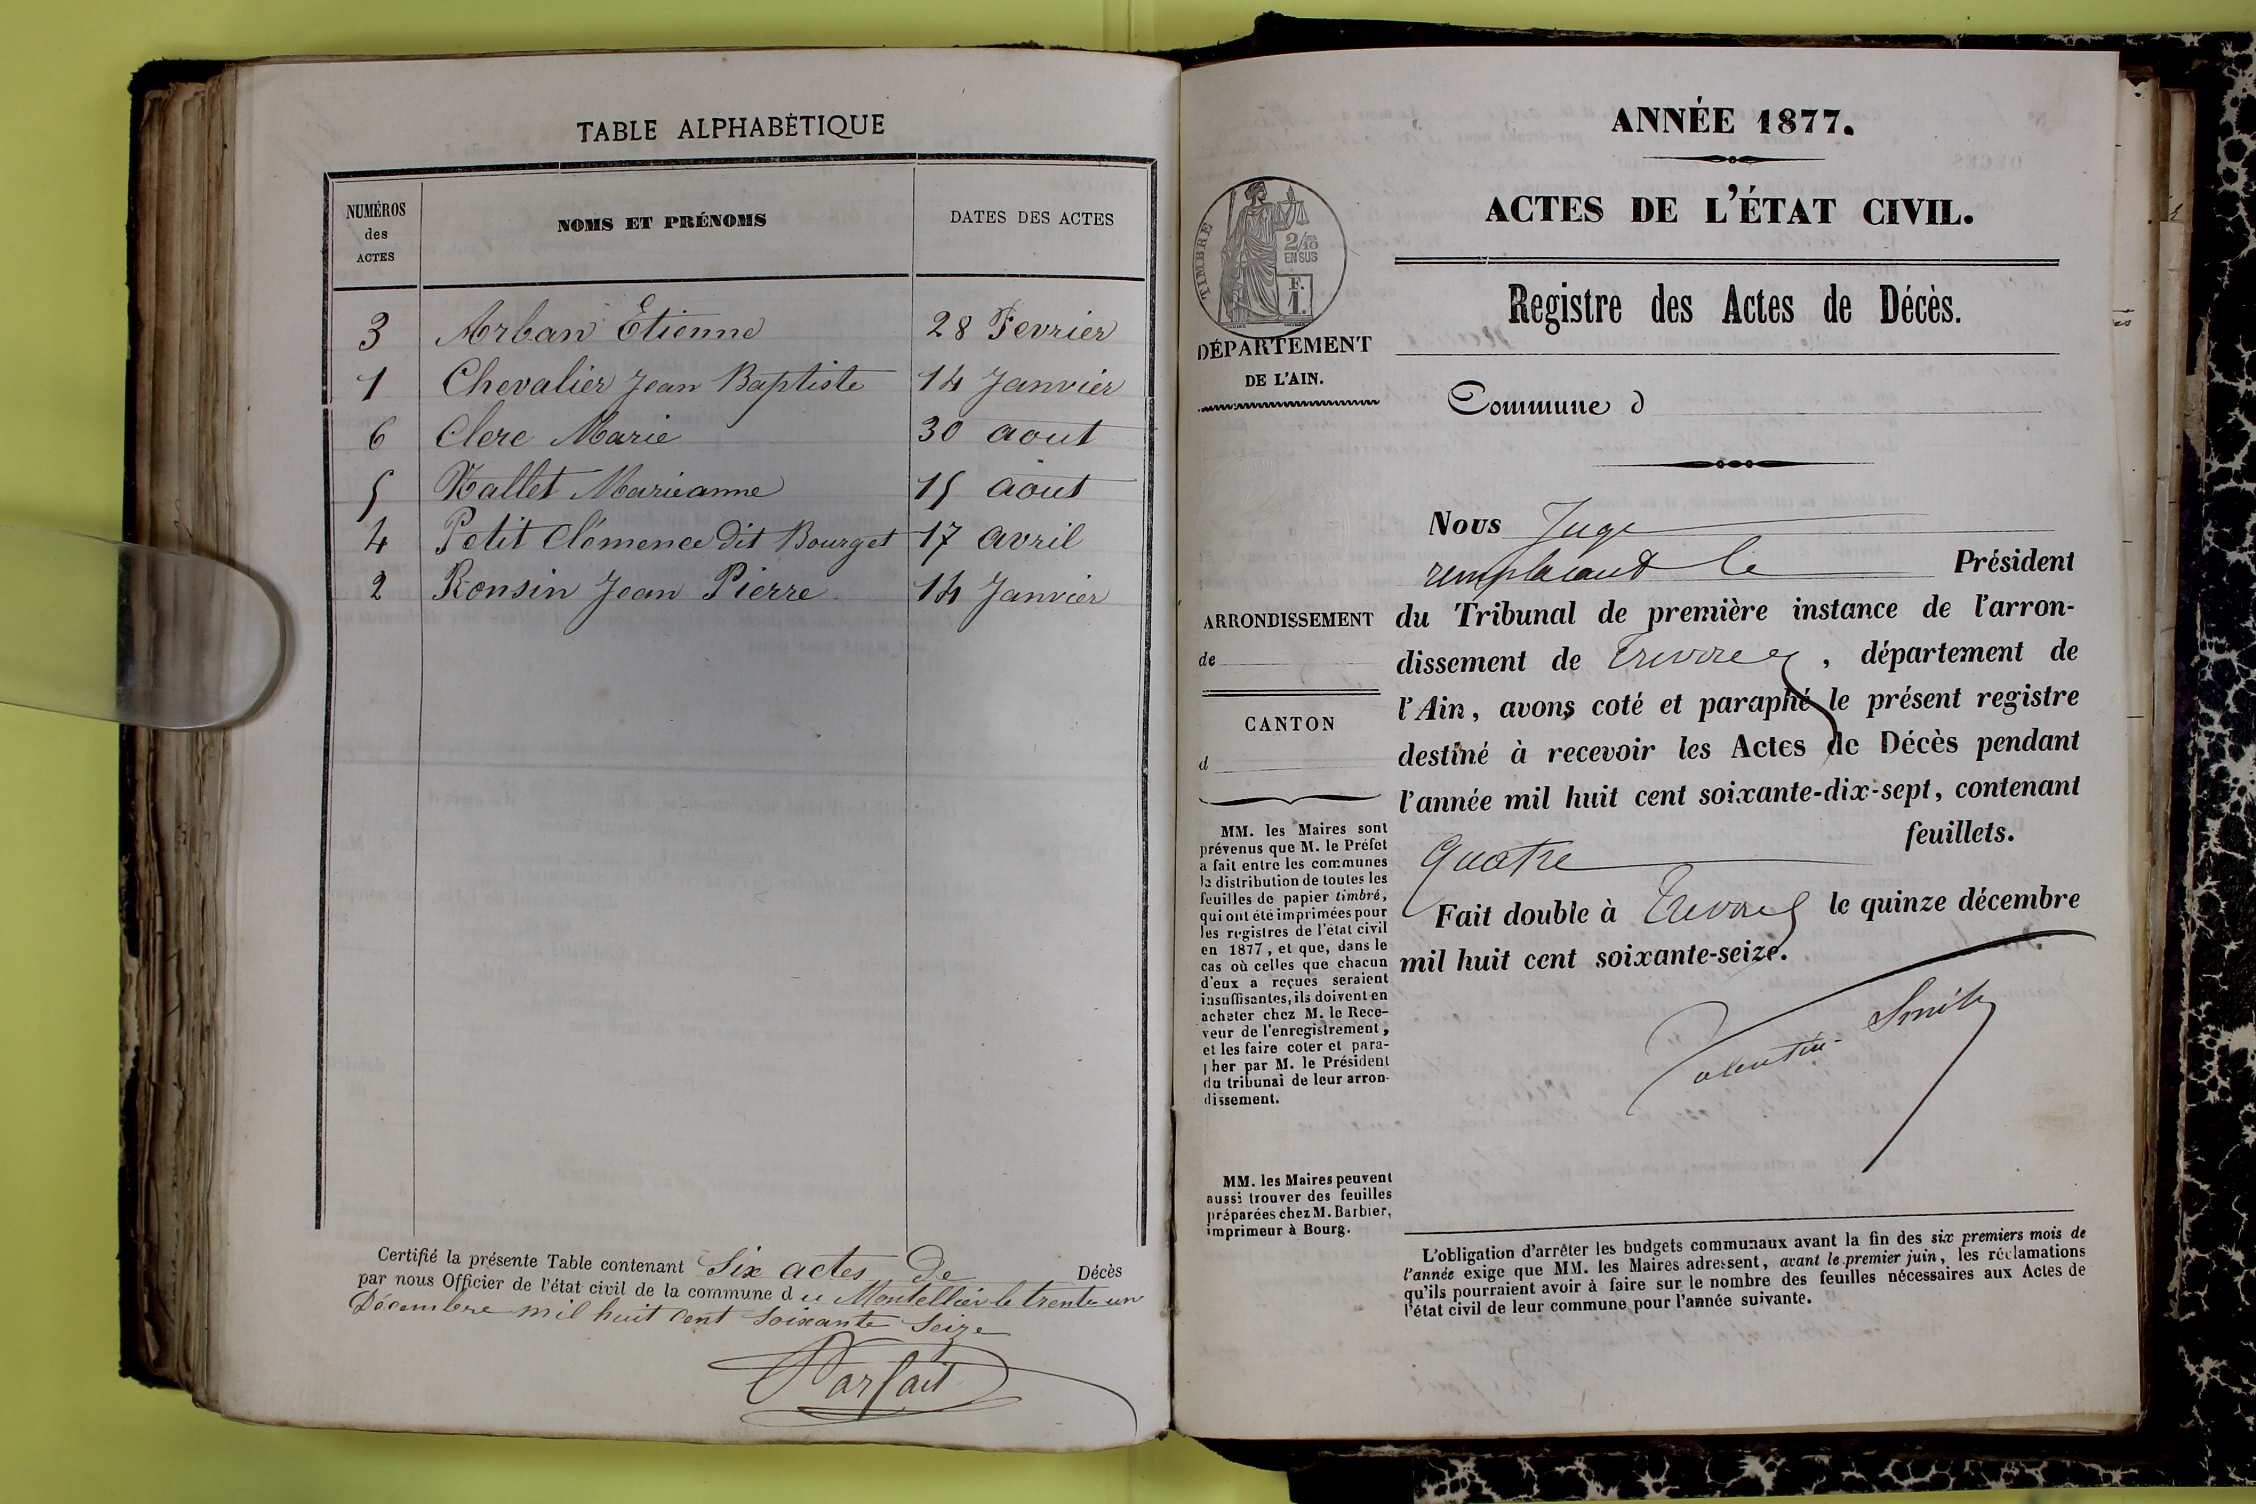 TABLE ALPHABÉTIQUE
NUMÉROS des ACTES NOMS ET PRÉNOMS DATES DES ACTES
3 Arban Etienne 28 Fevrier
1 Chevalier Jean Baptiste 14 Janvier
6 Clerc Marie 30 aout
5 Nallet Marieanne 15 aout
4 Petit Clémence dit Bourget 17 avril
2 Ronsin Jean Pierre 14 Janvier
Certifié la présente Table contenant Six actes de Décès
par nous Officier de l'état civil de la commune du Montellier le trente un
Décembre mil huit cent Soixante Seize
Parfait
ANNÉE 1877.
ACTES DE L'ÉTAT CIVIL.
Registre des Actes de Décès.
TIMBRE
2/10
EN SUS
F.
1.
DÉPARTEMENT
DE L'AIN.
Commune d
Nous Juge
remplacant le Président
du Tribunal de première instance de l'arron-
dissement de Trevoux, département de
l'Ain, avons coté et paraphé le présent registre
destiné à recevoir les Actes de Décès pendant
l'année mil huit cent soixante-dix-sept, contenant
quatre feuillets.
Fait double à Trevoux le quinze décembre
mil huit cent soixante-seize.
Valentin Smith
ARRONDISSEMENT
de
CANTON
d
MM. les Maires sont
prévenus que M. le Préfet
a fait entre les communes
la distribution de toutes les
feuilles de papier timbré,
qui ont été imprimées pour
les registres de l'état civil
en 1877, et que, dans le
cas où celles que chacun
d'eux a reçues seraient
insuffisantes, ils doivent en
acheter chez M. le Rece-
veur de l'enregistrement,
et les faire coter et para-
pher par M. le Président
du tribunal de leur arron-
dissement.
MM. les Maires peuvent
aussi trouver des feuilles
préparées chez M. Barbier,
imprimeur à Bourg.
L'obligation d'arrêter les budgets communaux avant la fin des six premiers mois de
l'année exige que MM. les Maires adressent, avant le premier juin, les réclamations
qu'ils pourraient avoir à faire sur le nombre des feuilles nécessaires aux Actes de
l'état civil de leur commune pour l'année suivante.